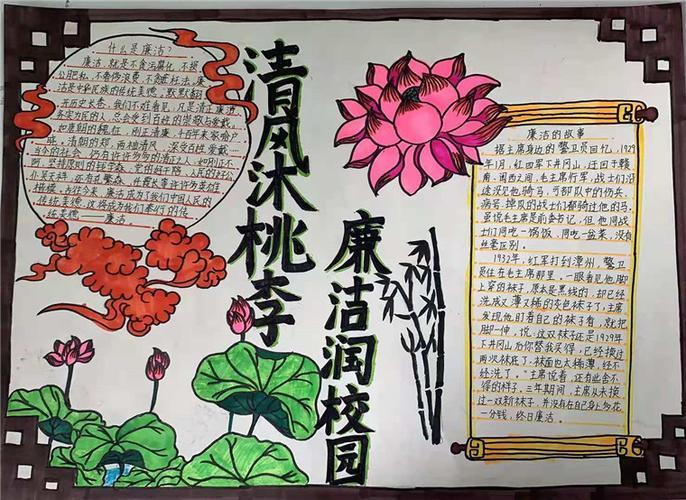 什么是廉洁？
廉洁，就是不贪污腐化，不损
公肥私，不奢侈浪费，不贪赃枉法，廉
洁是中华民族的传统美德，默默翻
开历史长卷，我们不难看见，凡是清正廉洁
的人，总会受到百姓的崇敬与爱戴，
如唐朝的魏征，刚正清廉，千百年来家喻户
晓，清朝的郑，两袖清风，深受百姓爱戴……
当今的社会，仍有许许多多的清正之人，如刚正不
阿，坚持原则的包
传统美德——廉洁
清风沐桃李
廉洁润校园
廉洁的故事
据主席身边的警卫员回忆，1929
年1月，红四军下井冈山，迂回于赣
南、闽西之间，毛主席行军，战士们沿
途没见他骑马，可部队中的伤兵，
病号，掉队的战士们都骑过他的马，
虽说毛主席是前委书记，但他同战
士们同吃一锅饭，同吃一盆菜，没有
丝毫区别。
1932年，红军打到漳州，警卫
员住在毛主席那里，一眼看见他脚
上穿的袜子，原本是黑线的，却已经
洗成又薄又稀的灰色袜子了，主席
发现他们看自己的袜子看，就把
脚一伸，说：这双袜子还是1929年
下井冈山后你替我买得，已经换过
两次袜底了，袜面也太稀薄，经不
经洗了。"主席说着，还有些舍不
得的样子，三年期间，主席从未换
过一双新袜子，并没有在自己身上多花
一分钱，终日廉洁。